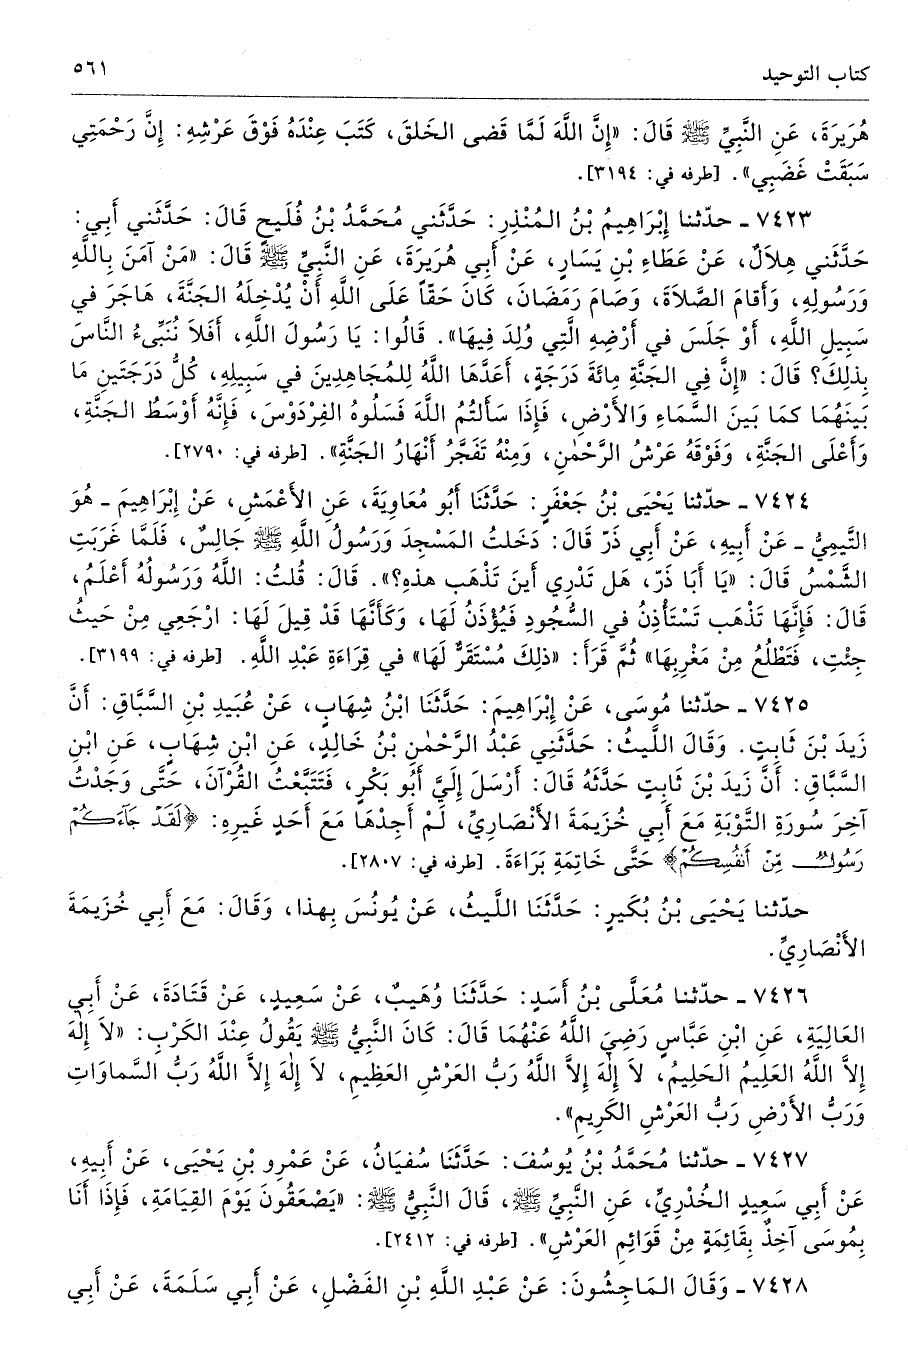 كتاب التوحيد ٥٦١
هُرَيرَةَ، عَنِ النَّبِيِّ ﷺ قَالَ: «إِنَّ اللَّهَ لَمَّا قَضى الخَلقَ، كَتَبَ عِنْدَهُ فَوْقَ عَرْشِهِ: إِنَّ رَحْمَتِي
سَبَقَتْ غَضَبِي». [طرفه في: ٣١٩٤].
٧٤٢٣ ـ حدّثنا إِبْرَاهِيمُ بْنُ المُنْذِرِ: حَدَّثَنِي مُحَمَّدُ بْنُ فُلَيحٍ قَالَ: حَدَّثَنِي أَبِي:
حَدَّثَنِي هِلاَلٌ، عَنْ عَطَاءِ بْنِ يَسَارٍ، عَنْ أَبِي هُرَيرَةَ، عَنِ النَّبِيِّ ﷺ قَالَ: «مَنْ آمَنَ بِاللَّهِ
وَرَسُولِهِ، وَأَقامَ الصَّلاَةَ، وَصَامَ رَمَضَانَ، كَانَ حَقّاً عَلَى اللَّهِ أَنْ يُدْخِلَهُ الجَنَّةَ، هَاجَرَ في
سَبِيلِ اللَّهِ، أَوْ جَلَسَ في أَرْضِهِ الَّتِي وُلِدَ فِيهَا». قَالُوا: يَا رَسُولَ اللَّهِ، أَفَلاَ نُنَبِّىءُ النَّاسَ
بِذلِكَ؟ قَالَ: «إِنَّ فِي الجَنَّةِ مِائَةَ دَرَجَةٍ، أَعَدَّهَا اللَّهُ لِلمُجَاهِدِينَ في سَبِيلِهِ، كُلُّ دَرَجَتَينِ مَا
بَينَهُمَا كما بَينَ السَّمَاءِ وَالأَرْضِ، فَإِذَا سَأَلتُمُ اللَّهَ فَسَلُوهُ الفِرْدَوْسَ، فَإِنَّهُ أَوْسَطُ الجَنَّةِ،
وَأَعْلَى الجَنَّةِ، وَفَوْقَهُ عَرْشُ الرَّحْمٰنِ، وَمِنْهُ تَفَجَّرُ أَنْهَارُ الجَنَّةِ». [طرفه في: ٢٧٩٠].
٧٤٢٤ ـ حدّثنا يَحْيَى بْنُ جَعْفَرٍ: حَدَّثَنَا أَبُو مُعَاوِيَةَ، عَنِ الأَعْمَشِ، عَنْ إِبْرَاهِيمَ ـ هُوَ
التَّيمِيُّ ـ عَنْ أَبِيهِ، عَنْ أَبِي ذَرّ قَالَ: دَخَلتُ المَسْجِدَ وَرَسُولُ اللَّهِ ﷺ جَالِسٌ، فَلَمَّا غَرَبَتِ
الشَّمْسُ قَالَ: «يَا أَبَا ذَرّ، هَل تَدْرِي أَينَ تَذْهَب هذِهِ؟». قَالَ: قُلتُ: اللَّهُ وَرَسُولُهُ أَعْلَمُ،
قَالَ: فَإِنَّهَا تَذْهَب تَسْتَأْذِنُ في السُّجُودِ فَيُؤْذَنُ لَهَا، وَكَأَنَّهَا قَدْ قِيلَ لَهَا: ارْجَعِي مِنْ حَيثُ
جِئْتِ، فَتَطْلُعُ مِنْ مَغْرِبِهَا» ثُمَّ قَرَأَ: «ذلِكَ مُسْتَقَرٌّ لَهَا» في قِرَاءَةِ عَبْدِ اللَّهِ. [طرفه في: ٣١٩٩].
٧٤٢٥ ـ حدّثنا مُوسَى، عَنْ إِبْرَاهِيمَ: حَدَّثَنَا ابْنُ شِهَابٍ، عَنْ عُبَيدِ بْنِ السَّبَّاقِ: أَنَّ
زَيدَ بْنَ ثَابِتٍ. وَقَالَ اللَّيثُ: حَدَّثَنِي عَبْدُ الرَّحْمٰنِ بْنُ خَالِدٍ، عَنِ ابْنِ شِهَابٍ، عَنِ ابْنِ
السَّبَّاقِ: أَنَّ زَيدَ بْنَ ثَابِتٍ حَدَّثَهُ قَالَ: أَرْسَلَ إِلَيَّ أَبُو بَكْرٍ، فَتَتَبَّعْتُ القُرْآنَ، حَتَّى وَجَدْتُ
آخِرَ سُورَةِ التَّوْبَةِ مَعَ أَبِي خُزَيمَةَ الأَنْصَارِيِّ، لَمْ أَجِدْهَا مَعَ أَحَدٍ غَيرِهِ: ﴿لَقَدْ جَاءَكُمْ
رَسُولٌ مِّنْ أَنفُسِكُمْ﴾ حَتَّى خَاتِمَةِ بَرَاءَةَ. [طرفه في: ٢٨٠٧].
حدّثنا يَحْيَى بْنُ بُكَيرٍ: حَدَّثَنَا اللَّيثُ، عَنْ يُونُسَ بِهذا، وَقَالَ: مَعَ أَبِي خُزَيمَةَ
الأَنْصَارِيِّ.
٧٤٢٦ ـ حدّثنا مُعَلَّى بْنُ أَسَدٍ: حَدَّثَنَا وُهَيبٌ، عَنْ سَعِيدٍ، عَنْ قَتَادَةَ، عَنْ أَبِي
العَالِيَةِ، عَنِ ابْنِ عَبَّاسٍ رَضِيَ اللَّهُ عَنْهُمَا قَالَ: كَانَ النَّبِيُّ ﷺ يَقُولُ عِنْدَ الكَرْبِ: «لاَ إِلٰهَ
إِلاَّ اللَّهُ العَلِيمُ الحَلِيمُ، لاَ إِلٰهَ إِلاَّ اللَّهُ رَبُّ العَرْشِ العَظِيمِ، لاَ إِلٰهَ إِلاَّ اللَّهُ رَبُّ السَّماوَاتِ
وَرَبُّ الأَرْضِ رَبُّ العَرْشِ الكَرِيمِ».
٧٤٢٧ ـ حدّثنا مُحَمَّدُ بْنُ يُوسُفَ: حَدَّثَنَا سُفيَانُ، عَنْ عَمْرِو بْنِ يَحْيَى، عَنْ أَبِيهِ،
عَنْ أَبِي سَعِيدٍ الخُدْرِيِّ، عَنِ النَّبِيِّ ﷺ، قَالَ النَّبِيُّ ﷺ: «يَصْعَقُونَ يَوْمَ القِيَامَةِ، فَإِذَا أَنَا
بِمُوسَى آخِذٌ بِقَائِمَةٍ مِنْ قَوَائِمِ العَرْشِ». [طرفه في: ٢٤١٢].
٧٤٢٨ ـ وَقَالَ المَاجِشُونَ: عَنْ عَبْدِ اللَّهِ بْنِ الفَضْلِ، عَنْ أَبِي سَلَمَةَ، عَنْ أَبِي